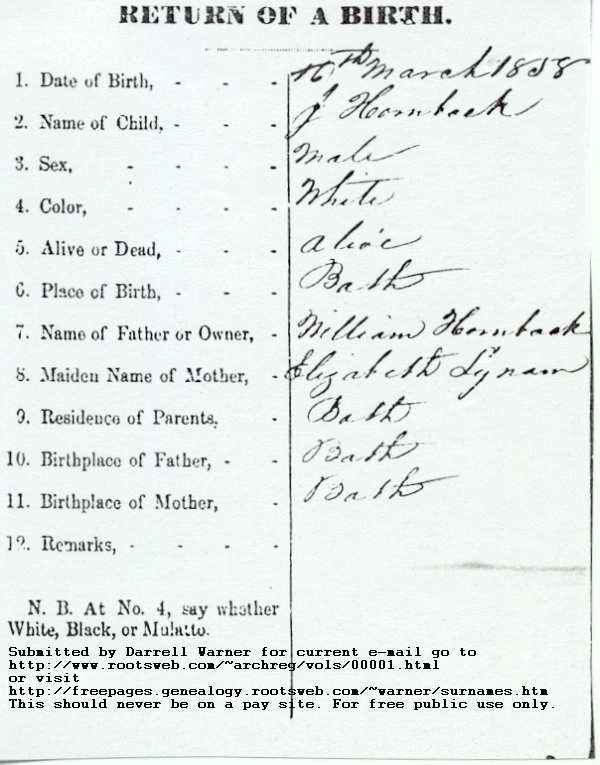 RETURN OF A BIRTH.
1. Date of Birth, - - - 16th March 1858
2. Name of Child, - - - J Hornback
3. Sex, - - - - Male
4. Color, - - - - White
5. Alive or Dead, - - - alive
6. Place of Birth, - - - Bath
7. Name of Father or Owner, - William Hornback
8. Maiden Name of Mother, - Elizabeth Lynam
9. Residence of Parents, - Bath
10. Birthplace of Father, - - Bath
11. Birthplace of Mother, - Bath
12. Remarks, - - - -
N. B. At No. 4, say whether
White, Black, or Mulatto.
Submitted by Darrell Warner for current e-mail go to
http://www.rootsweb.com/~archreg/vols/00001.html
or visit
http://freepages.genealogy.rootsweb.com/~warner/surnames.htm
This should never be on a pay site. For free public use only.